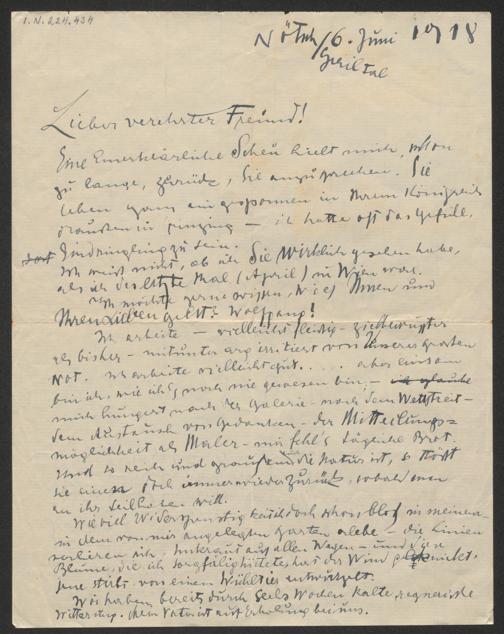 I.N. 224.434
Nötsch/6. Juni 1918
Gailtal
Lieber verehrter Freund!
Eine Unerklärliche Scheu hielt mich, schon
zu lange, zurück, Sie anzusprechen. Sie
leben ganz eingesponnen in Ihrem Königreich
draussen in — ich hatte oft das Gefühl,
dort Eindringling zu sein.
Ich weiß nicht, ob ich Sie wirklich gesehen habe,
als ich das letzte Mal (April) in Wien war.
Ich möchte gerne wissen, wie es Ihnen und
Ihren Lieben geht. Wolfgang!
Ich arbeite — vielleicht fleißig – zielbewußter
als bisher – mitunter arg irritiert von unserer großen
Not. Ich arbeite vielleicht gut . . . . . aber einsam
bin ich, wie ich's noch nie gewesen bin, – ich glaube
mich hungert nach der Galerie – nach dem Wettstreit –
dem Austausch von Gedanken – der Mitteilungs=
möglichkeit als Maler – mir fehlt's tägliche Brot.
Und so reich und die Natur ist, so stößt
sie einen doch immer wieder zurück, sobald man
an ihr will.
Wie viel Widerspenstigkeit ich doch schon bloß in meinem –
in dem von mir angelegten Garten erlebe – die Linien
verlieren sich. Unkraut auf allen Wegen – und diese
Blume, die ich sorgfältig hütete, hat der Wind geknickt,
jene stirbt von einem Wühltier entwurzelt.
Wir haben bereits durch sechs Wochen kalte, regnerische
Witterung. Mein Vater ist auf Erholung bei uns.